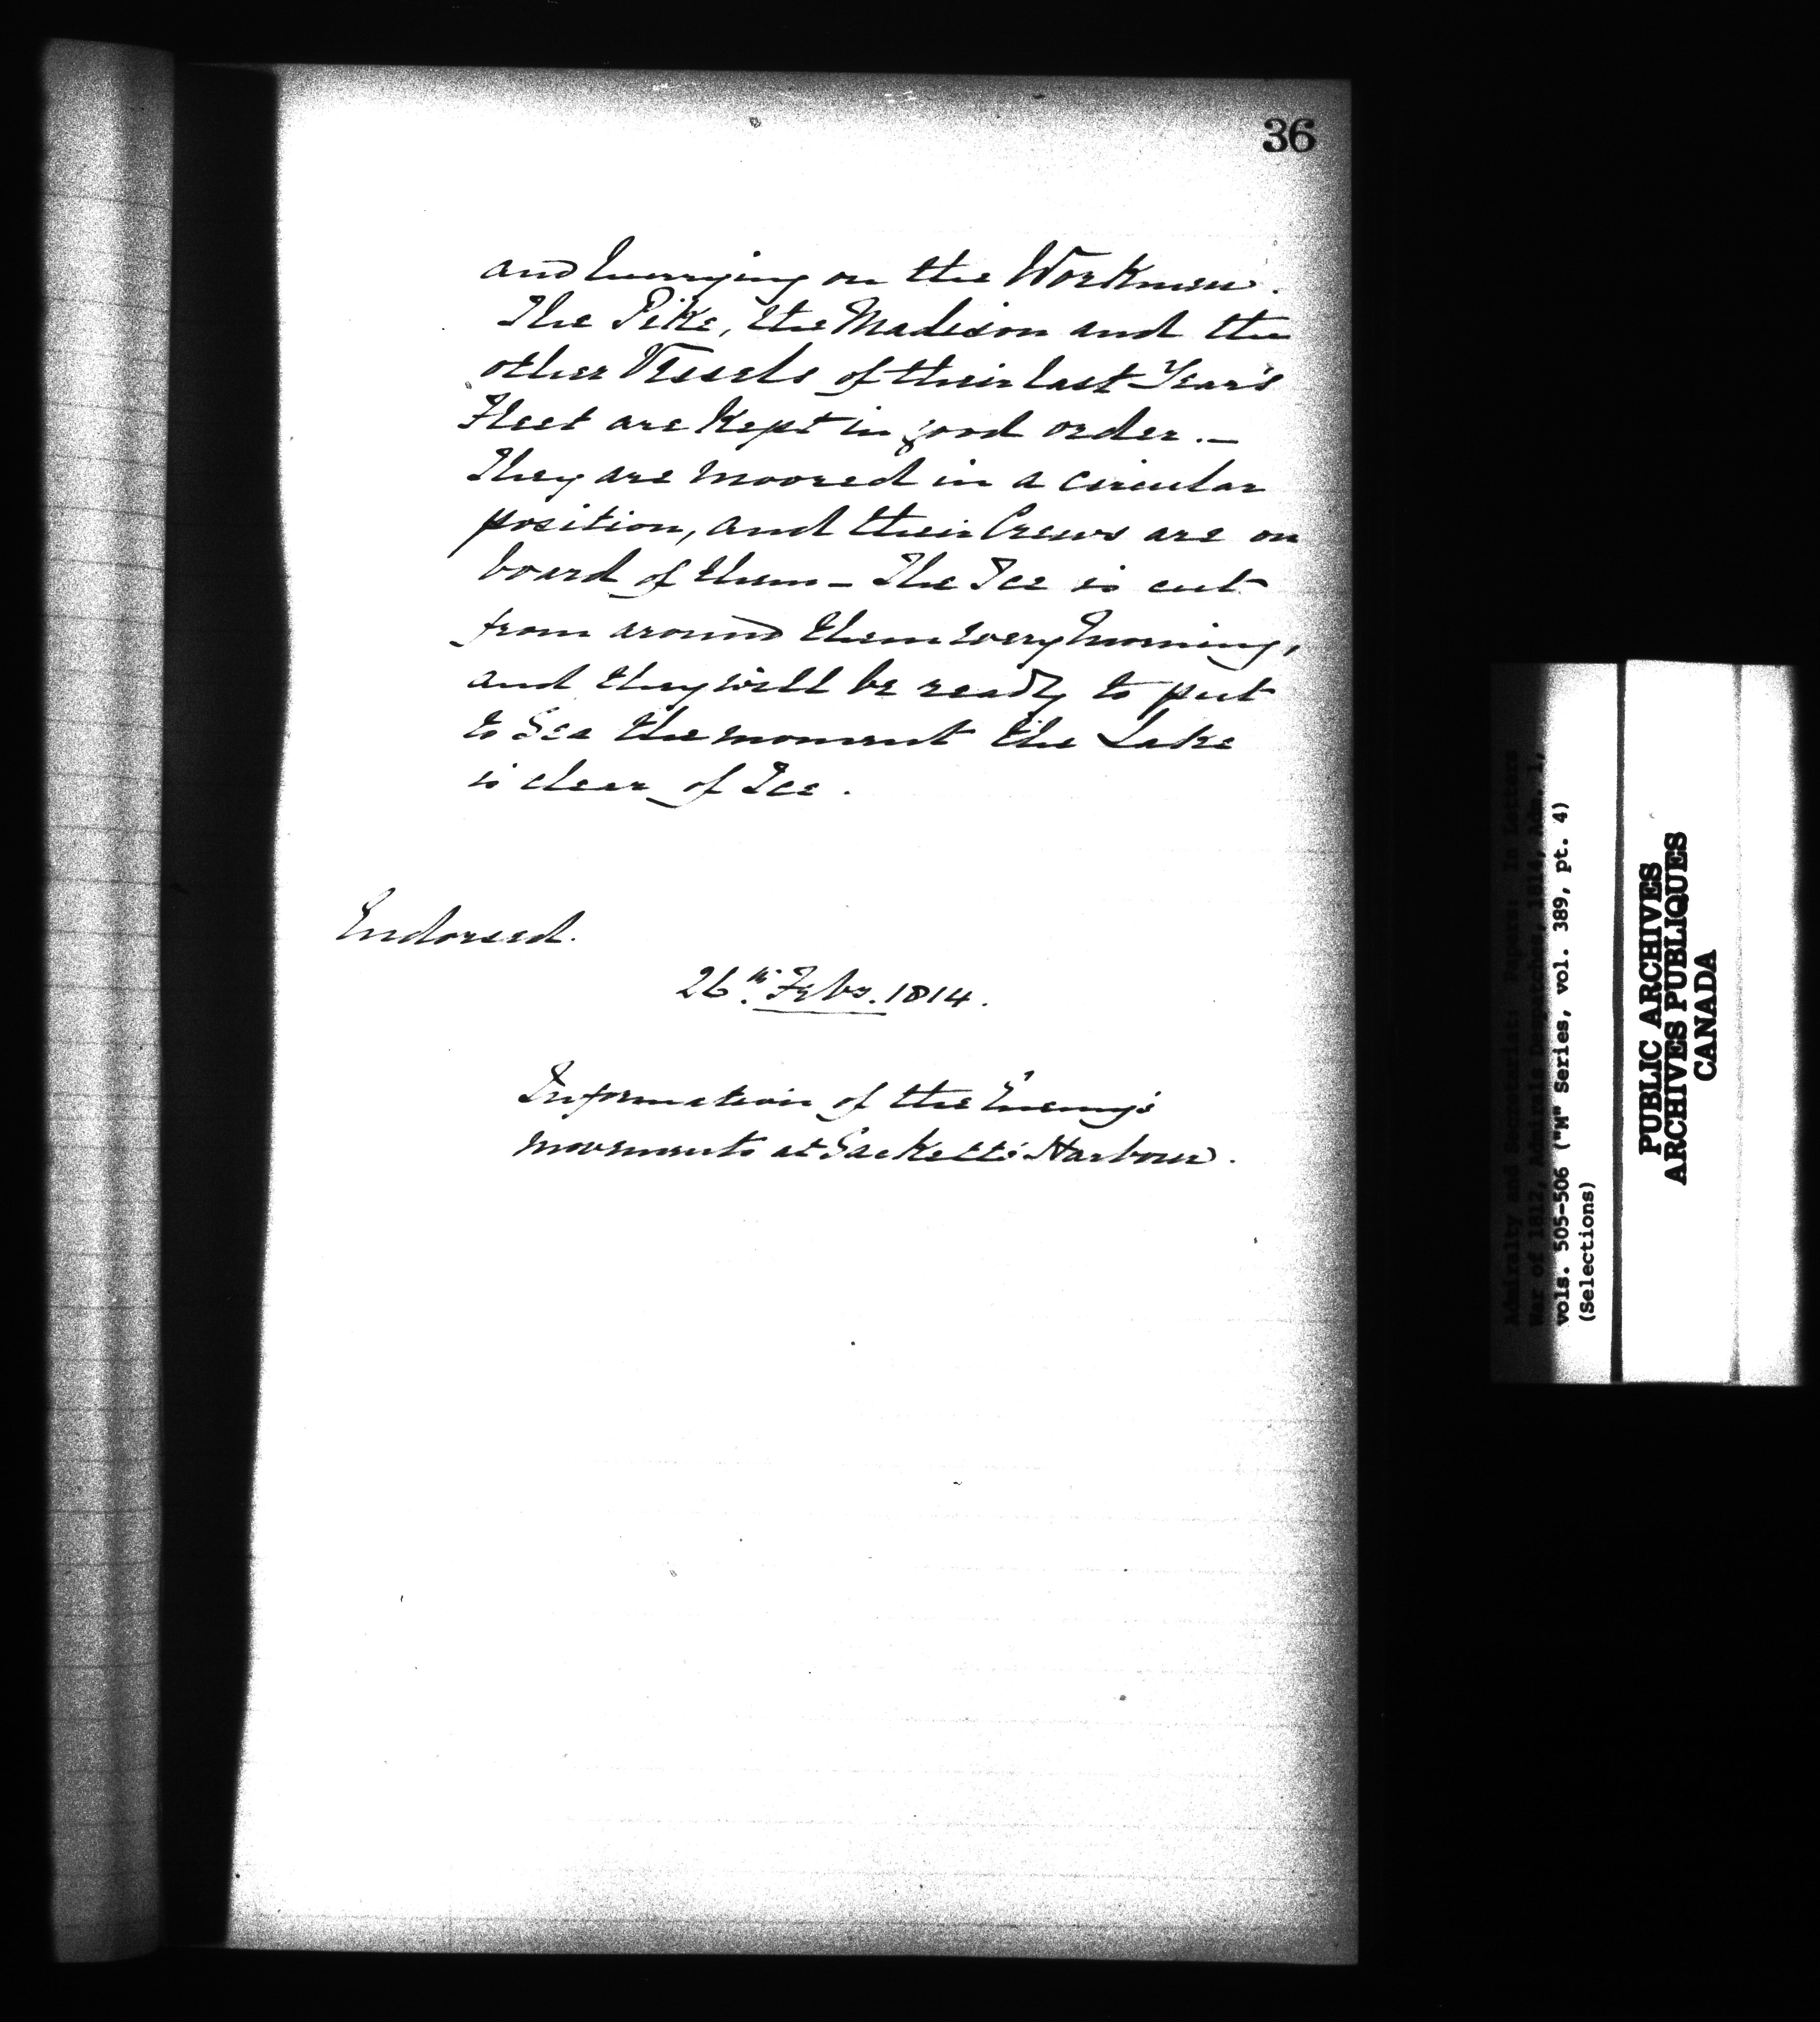 36
and hurrying on the Workmen.
The Pike, the Madison and the
other Vessels of their last Year's
Fleet are kept in good order.—
They are moored in a circular
position, and their Crews are on
board of them – The Ice is cut
from around them every morning,
and they will be ready to put
to Sea the moment the Lake
is clear of Ice.
Endorsed.
26th. Feby. 1814.
Information of the Enemy's
movements at Sacketts Harbour.
Admiralty and Secretariat: Papers: In Letters
War of 1812, Admirals Despatches, 1814, Adm. 1,
vols. 505-506 ("M" Series, vol. 389, pt. 4)
(Selections)
PUBLIC ARCHIVES
ARCHIVES PUBLIQUES
CANADA